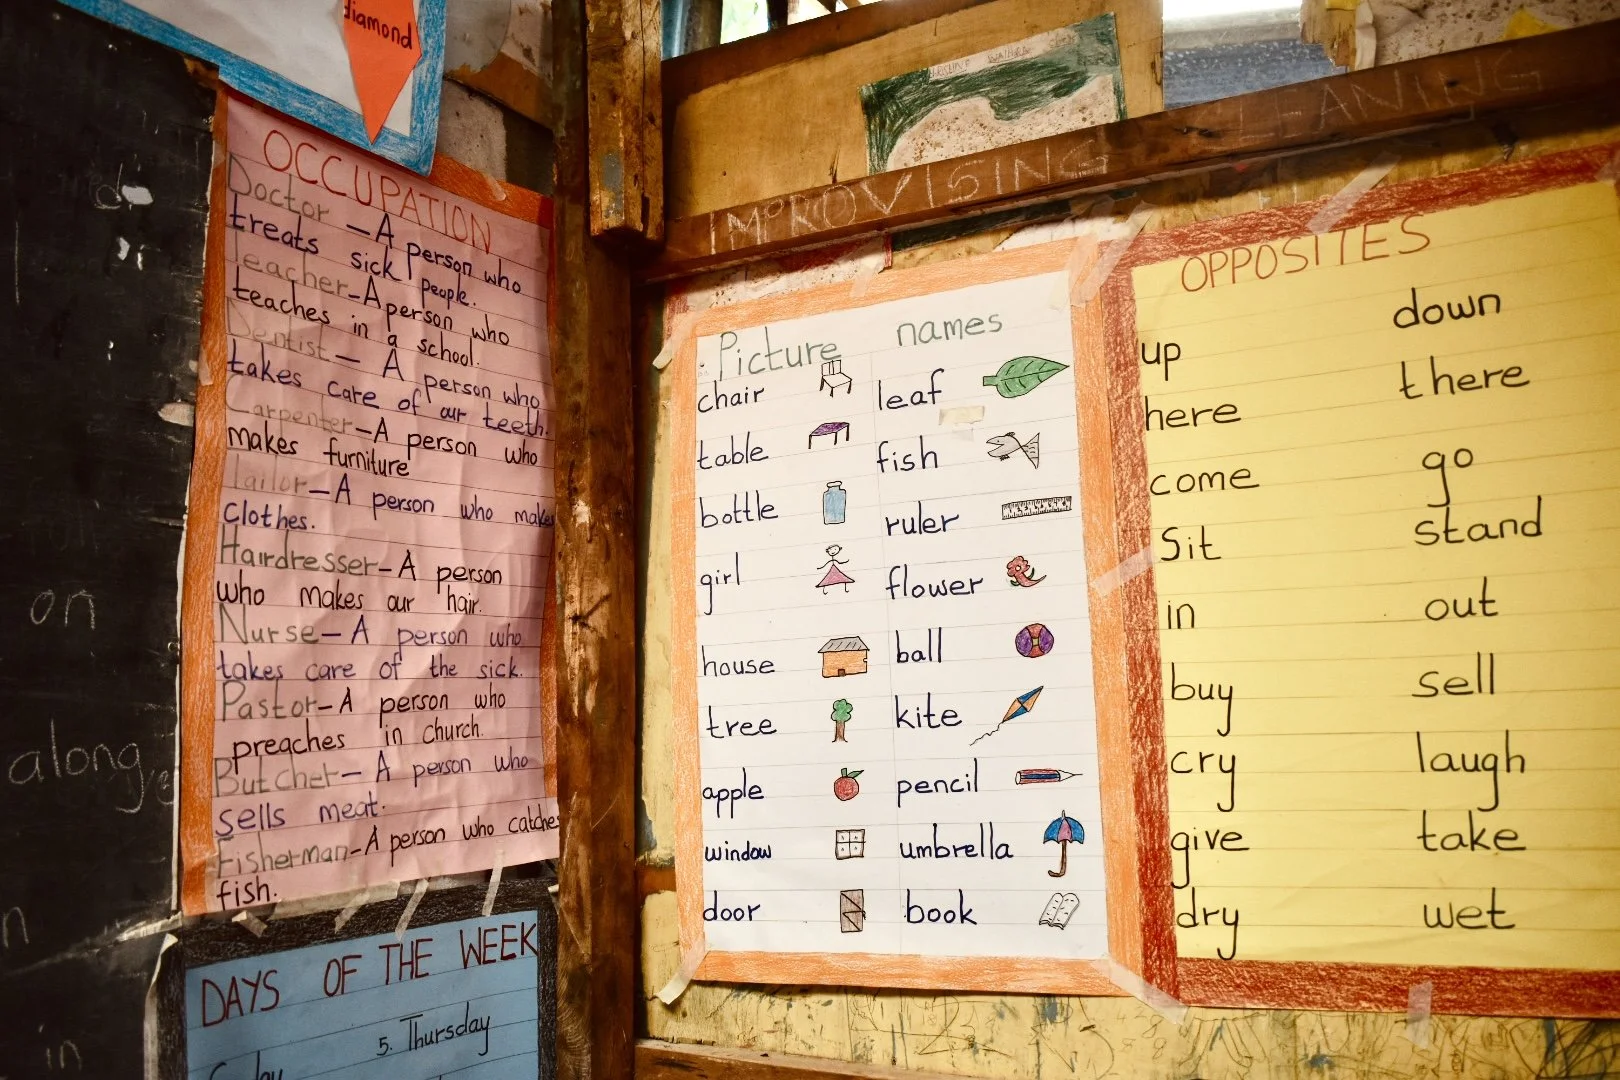 diamond
OCCUPATION
Doctor – A person who
treats sick people.
Teacher – A person who
teaches in a school.
Dentist – A person who
takes care of our teeth.
Carpenter – A person who
makes furniture
Tailor – A person who makes
clothes.
Hairdresser – A person
who makes our hair.
Nurse – A person who
takes care of the sick.
Pastor – A person who
preaches in church.
Butcher – A person who
sells meat.
Fisherman – A person who catches
fish.
DAYS OF THE WEEK
5. Thursday
on
along
in
IMPROVISING LEANING
Picture names
chair leaf
table fish
bottle ruler
girl flower
house ball
tree kite
apple pencil
window umbrella
door book
OPPOSITES
up down
here there
come go
Sit stand
in out
buy sell
cry laugh
give take
dry wet